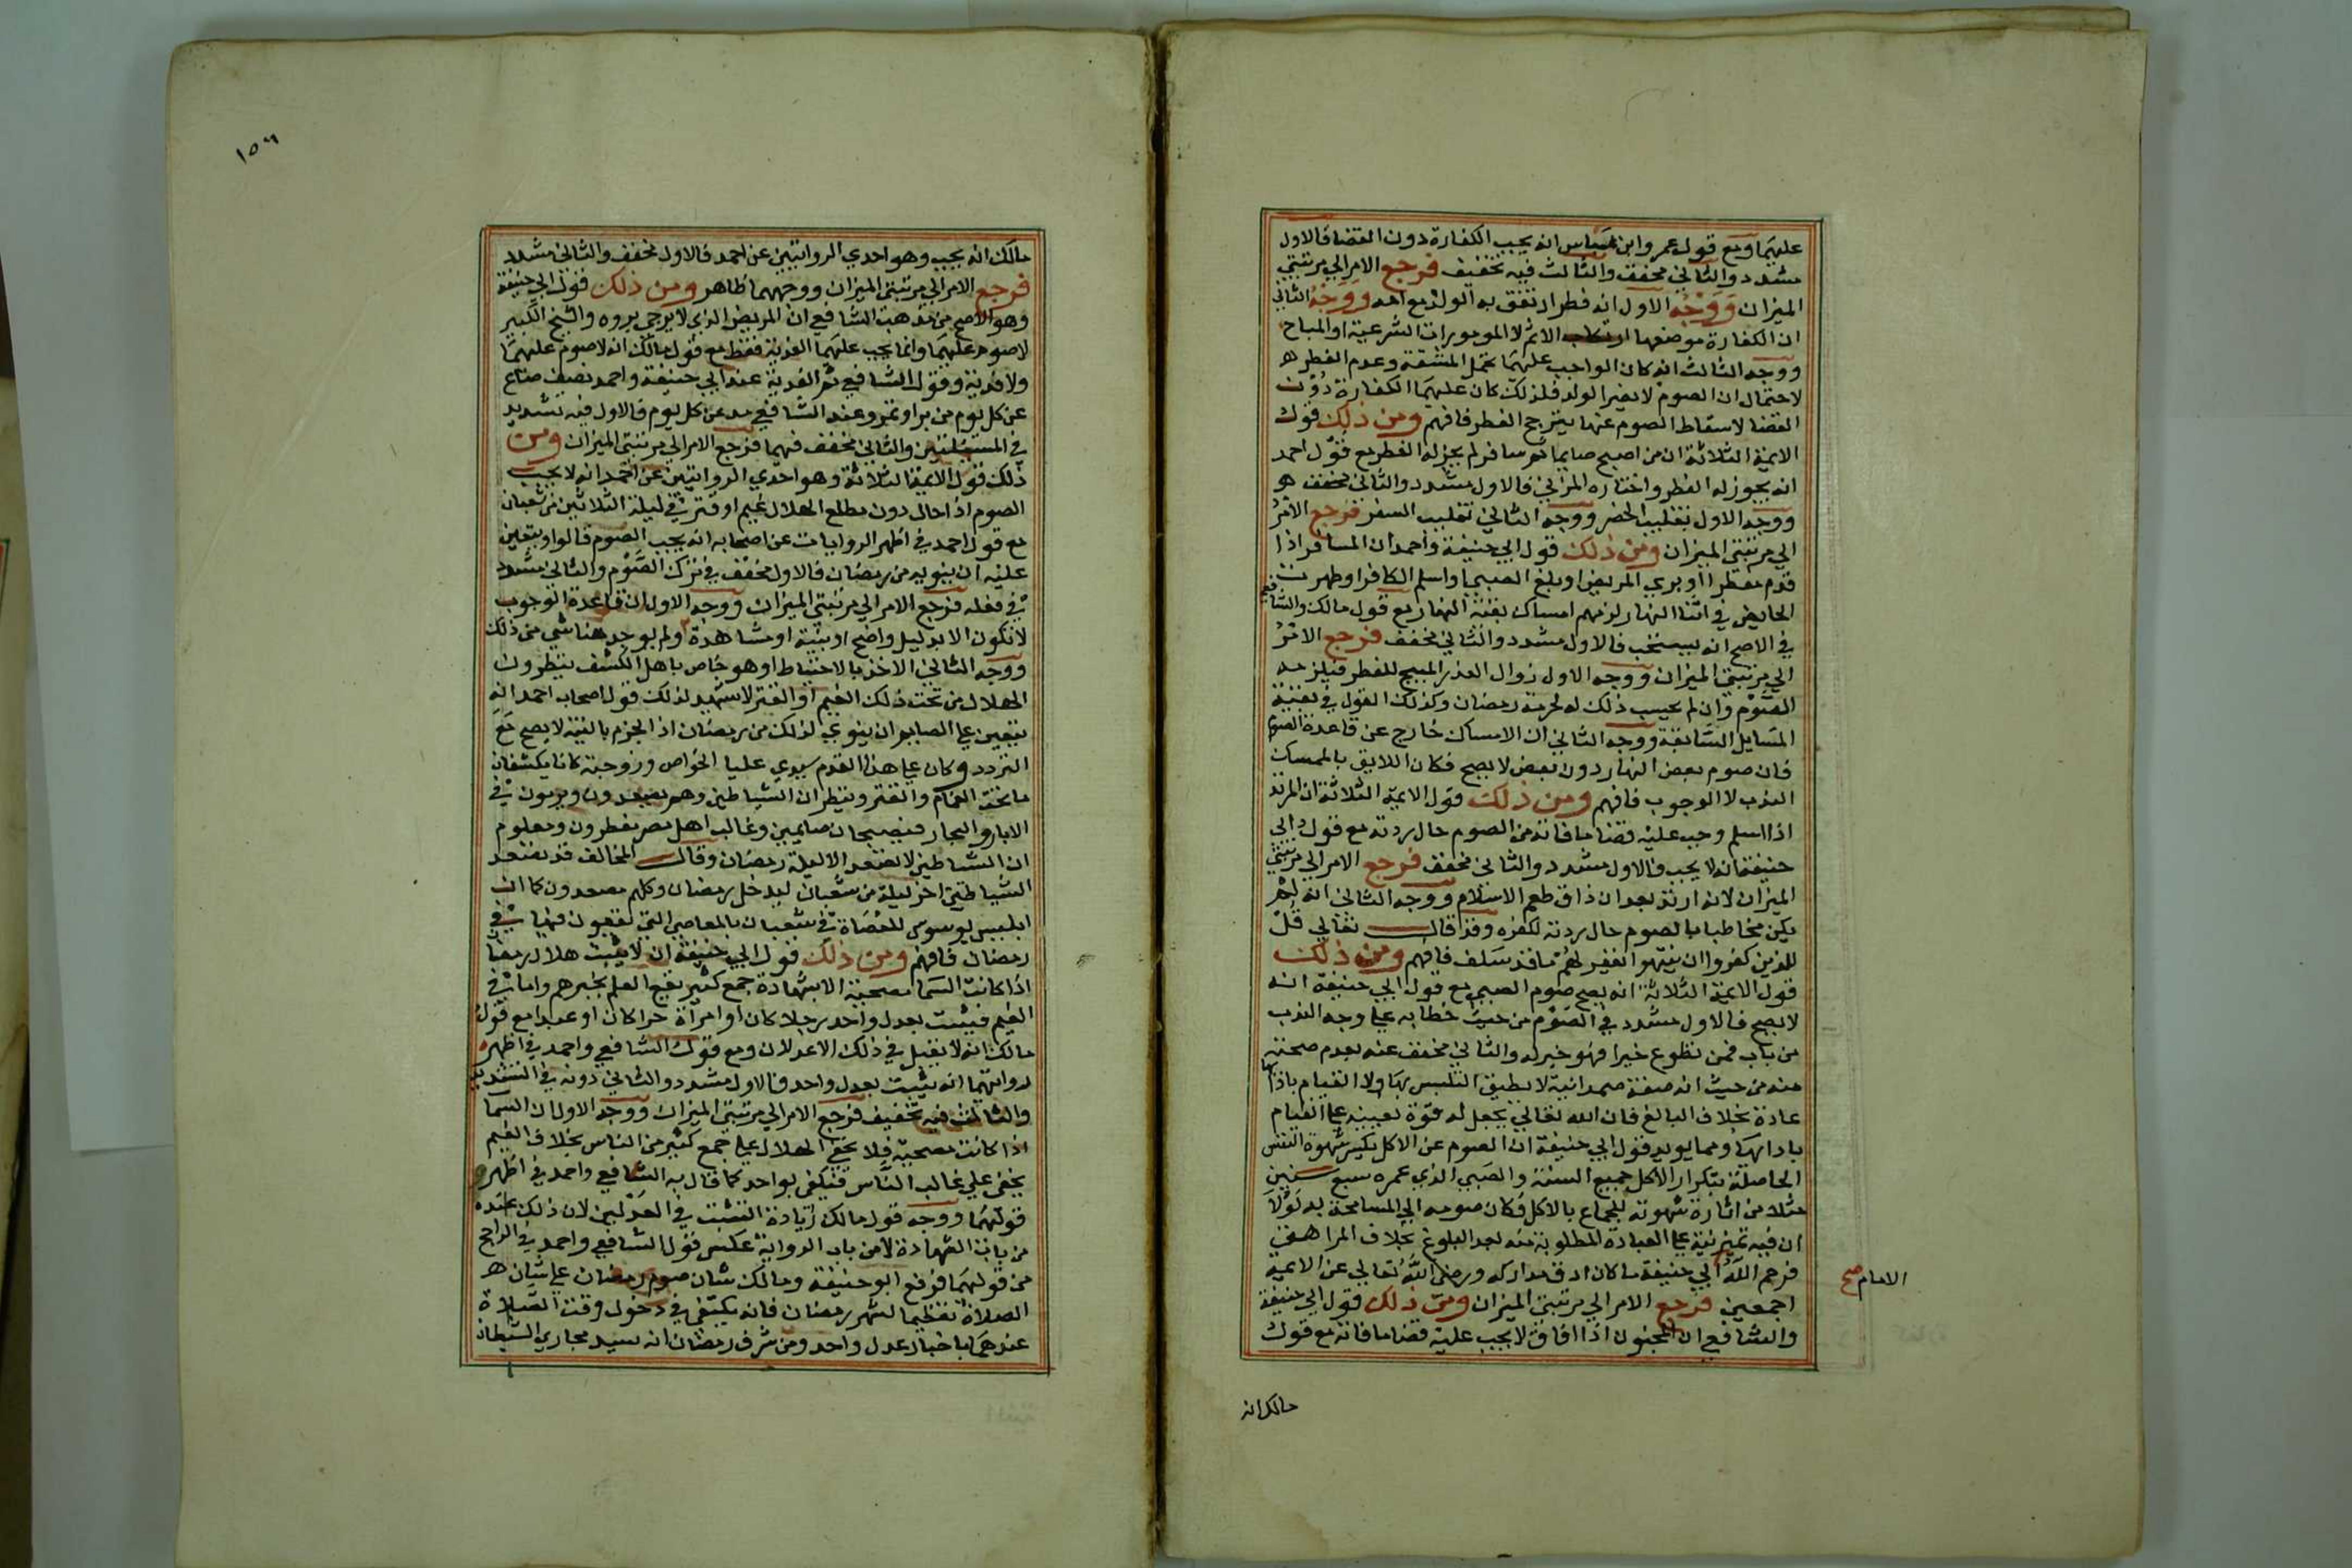 عليهما ومع قول عمر وابن عباس انه يجب الكفارة دون القضا فالاول
مشدد والثاني مخفف والثالث فيه تخفيف فرجع الامر الي مرتبتي
الميزان ووجه الاول انه فطر ارتفق به الولد مع امه ووجه الثاني
ان الكفارة موضعها ارتكاب الاثم لا المامورات الشرعية او المباح
ووجه الثالث انه كان الواجب عليهما تحمل المشقة وعدم الفطر
لاحتمال ان الصوم لا يضر الولد فلذلك كان عليهما الكفارة دون
القضا لاسقاط الصوم عنها بترجح الفطر فافهم ومن ذلك قول
الايمة الثلاثة ان من اصبح صايما ثم سافر لم يجز له الفطر مع قول احمد
انه يجوز له الفطر واختاره المزني فالاول مشدد والثاني مخفف
ووجه الاول تغليب الحضر ووجه الثاني تغليب السفر فرجع الامر
الي مرتبتي الميزان ومن ذلك قول ابي حنيفة واحمد ان المسافر اذا
قدم مفطرا او بري المريض او بلغ الصبي او اسلم الكافر او طهرت
الحايض في اثنا النهار لزمهم امساك بقية النهار مع قول مالك والشافعي
في الاصح انه يستحب فالاول مشدد والثاني مخفف فرجع الامر
الي مرتبتي الميزان ووجه الاول زوال العذر المبيح للفطر فيلزمه
الصوم وان لم يحسب ذلك له لحرمة رمضان وكذلك القول في بقية
المسايل السابقة ووجه الثاني ان الامساك خارج عن قاعدة الصوم
فان صوم بعض النهار دون بعض لا يصح فكان اللايق بالممسك
الندب لا الوجوب فافهم ومن ذلك قول الايمة الثلاثة ان المرتد
اذا اسلم وجب عليه قضا ما فاته من الصوم حال ردته مع قول ابي
حنيفة انه لا يجب فالاول مشدد والثاني مخفف فرجع الامر الي مرتبتي
الميزان لانه ارتد بعد ان ذاق طعم الاسلام ووجه الثاني انه لم
يكن مخاطبا بالصوم حال ردته لكفره وقد قال تعالي قل
للذين كفروا ان ينتهوا يغفر لهم ما قد سلف فافهم ومن ذلك
قول الايمة الثلاثة انه يصح صوم الصبي مع قول ابي حنيفة انه
لا يصح فالاول مشدد في الصوم من حيث خطابه علي وجه الندب
من باب فمن تطوع خيرا فهو خير له والثاني مخفف عنه بعدم صحته
منه من حيث انه صفة صمدانية لا يطيق التلبس بها ولا القيام بادابها
عادة بخلاف البالغ فان الله تعالي يجعل له قوة تعينه علي القيام
بادابها ومما يويد قول ابي حنيفة ان الصوم عن الاكل يكسر شهوة النفس
الحاصلة بتكرار الاكل جميع السنة والصبي الذي عمره سبع سنين
مثلا من اثارة شهوته للجماع بالاكل فكان صومه الي المسامحة به لولا
ان فيه تمرينه علي العبادة المطلوبة منه بعد البلوغ بخلاف المراهق
فرحم الله ابي حنيفة ما كان ادق مداركه ورضي الله تعالي عن الايمة
اجمعين فرجع الامر الي مرتبتي الميزان ومن ذلك قول ابي حنيفة
والشافعي ان المجنون اذا افاق لا يجب عليه قضا ما فاته مع قول
الامام صح
مالك انه
١٥٦
مالك انه يجب وهو احدي الروايتين عن احمد فالاول مخفف والثاني مشدد
فرجع الامر الي مرتبتي الميزان ووجههما ظاهر ومن ذلك قول ابي حنيفة
وهو الاصح من مذهب الشافعي ان المريض الذي لا يرجي بروه والشيخ الكبير
لا صوم عليهما وانما يجب عليهما الفدية فقط مع قول مالك انه لا صوم عليهما
ولا فدية وقول الشافعي ثم الفدية عند ابي حنيفة واحمد نصف صاع
عن كل يوم من بر او تمر وعند الشافعي مد عن كل يوم فالاول فيه تشديد
في المسئلتين والثاني مخفف فيهما فرجع الامر الي مرتبتي الميزان ومن
ذلك قول الايمة الثلاثة وهو احدي الروايتين عن احمد انه لا يجب
الصوم اذا حال دون مطلع الهلال غيم او قتر في ليلة الثلاثين من شعبان
مع قول احمد في اظهر الروايات عن اصحابه انه يجب الصوم قالوا ويتعين
عليه ان ينويه من رمضان فالاول مخفف في ترك الصوم والثاني مشدد
في فعله فرجع الامر الي مرتبتي الميزان ووجه الاول ان قاعدة الوجوب
لا تكون الا بدليل واضح او بينة او مشاهدة ولم يوجد هنا شي من ذلك
ووجه الثاني الاخذ بالاحتياط او هو خاص باهل الكشف ينظرون
الهلال من تحت ذلك الغيم او القتر لا سيما لذلك قول اصحاب احمد انه
يتعين علي الصايم ان ينوي لذلك من رمضان اذ الجزم بالنية لا يصح مع
التردد وكان علي هذا القدم سيدي عليا الخواص وزوجته كانا يكشفان
ما تحت الغمام والقتر وينظران الشياطين وهم يصعدون ويرمون في
الابار والبحار فيصبحان صايمين وغالب اهل مصر مفطرون ومعلوم
ان الشياطين لا تصفد الا ليلة رمضان وقال المخالف قد تصفد
الشياطين اخر ليلة من شعبان ليدخل رمضان وكلهم مصفدون كما ان
ابليس يوسوس للعصاة في شعبان بالمعاصي التي يقعون فيها في
رمضان فافهم ومن ذلك قول ابي حنيفة ان لا يثبت هلال رمضان
اذا كانت السما مصحية الا بشهادة جمع كثير يقع العلم بخبرهم واما في
الغيم فيثبت بعدل واحد رجلا كان او امراة حرا كان او عبدا مع قول
مالك انه لا يقبل في ذلك الا عدلان ومع قول الشافعي واحمد في اظهر
روايتهما انه يثبت بعدل واحد فالاول مشدد والثاني دونه في التشديد
والثالث فيه تخفيف فرجع الامر الي مرتبتي الميزان ووجه الاول ان السما
اذا كانت مصحية فلا يخفي الهلال علي جمع كثير من الناس بخلاف الغيم
يخفي علي غالب الناس فيكفي بواحد كما قال به الشافعي واحمد في اظهر
قولهما ووجه قول مالك زيادة التثبت في العدلين لان ذلك عنده
من باب الشهادة لا من باب الرواية عكس قول الشافعي واحمد في الراجح
من قولهما فرفع ابو حنيفة ومالك شان صوم رمضان علي شان
الصلاة تعظيما لشهر رمضان فانه يكتفي في دخول وقت الصلاة
عندهما باخبار عدل واحد ومن شرف رمضان انه يسد مجاري الشيطان